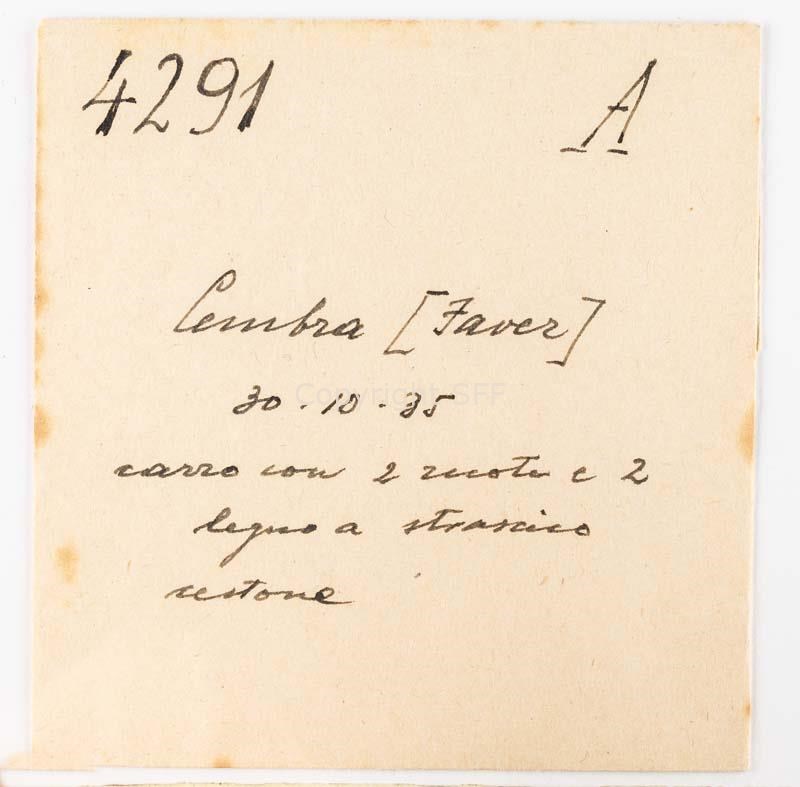 4291 A
Cembra [Faver]
Copyright SFF
30.10.35
carro con 2 ruote e 2
legno a strascico
cestone